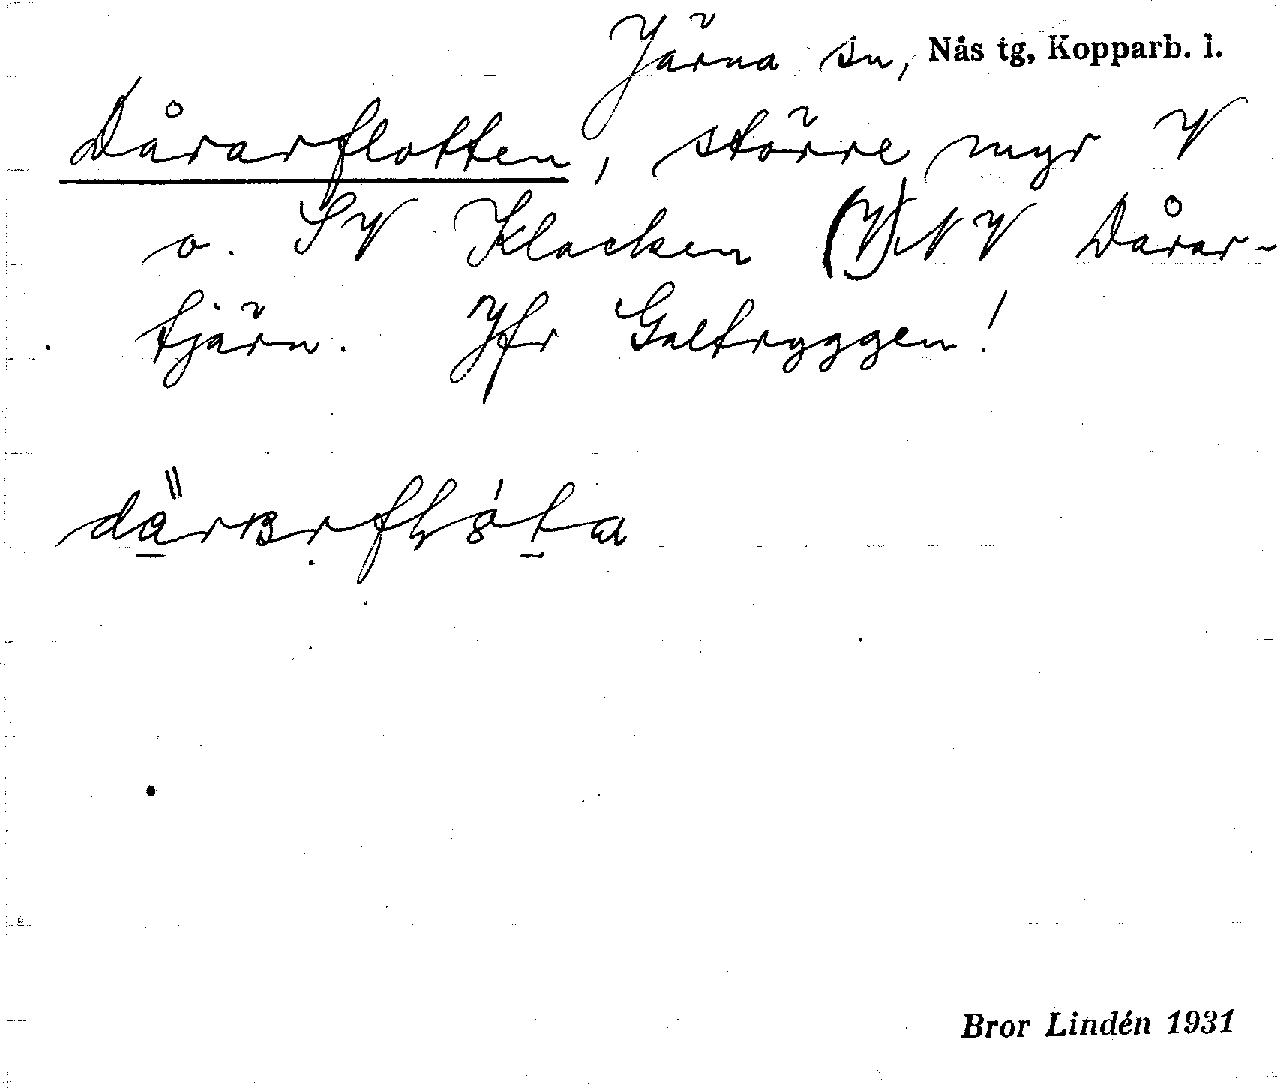 Järna sn, Nås tg, Kopparb. l.
Dårarflotten, större myr V
o. SV Klacken (V) NV Dårar-
tjärn. Jfr Galtryggen!
Bror Lindén 1931